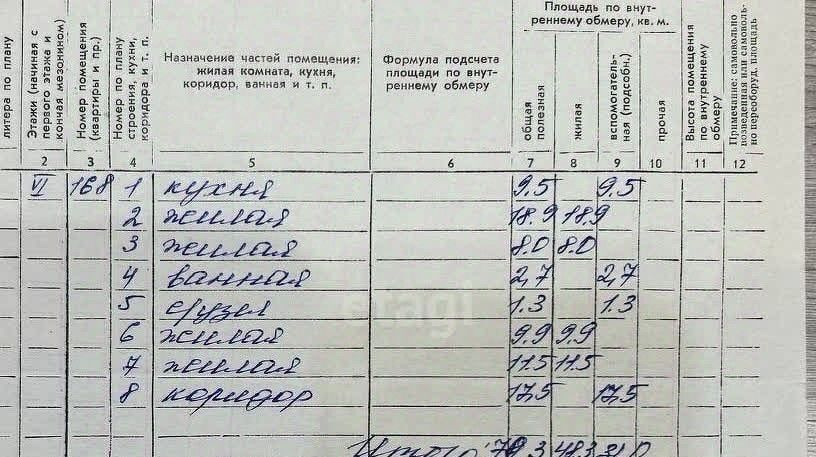 литера по плану
Этажи (начиная с первого этажа и кончая мезонином)
Номер помещения (квартиры и пр.)
Номер по плану строения, кухни, коридора и т. п.
Назначение частей помещения: жилая комната, кухня, коридор, ванная и т. п.
Формула подсчета площади по внутреннему обмеру
Площадь по внутреннему обмеру, кв. м.
общая полезная
жилая
вспомогательная (подсобн.)
прочая
Высота помещения по внутреннему обмеру
Примечание: самовольно возведенная или самовольно переоборуд. площадь
2 3 4 5 6 7 8 9 10 11 12
VI 168 1 кухня 9.5 9.5
2 жилая 18.9 18.9
3 жилая 8.0 8.0
4 ванная 2,7 2,7
5 с/узел 1.3 1.3
6 жилая 9.9 9.9
7 жилая 11.5 11.5
8 коридор 17,5 17,5
Итого: 79.3 48.3 31.0
etagi